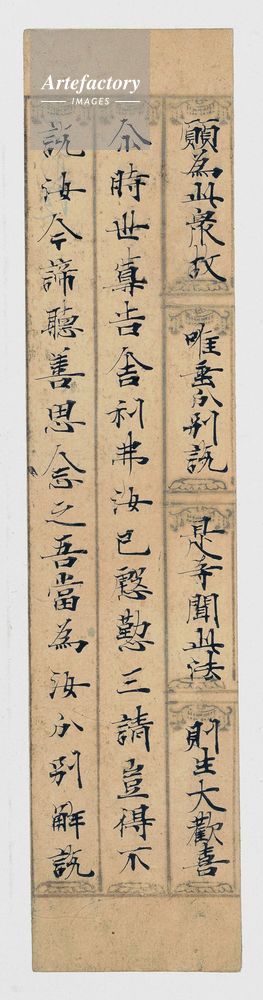 Artefactory
IMAGES
願為此衆故 唯垂分別説 是等聞此法 則生大歡喜
尒時世尊告舎利弗汝已慇懃三請豈得不
説汝今諦聽善思念之吾當為汝分別解説